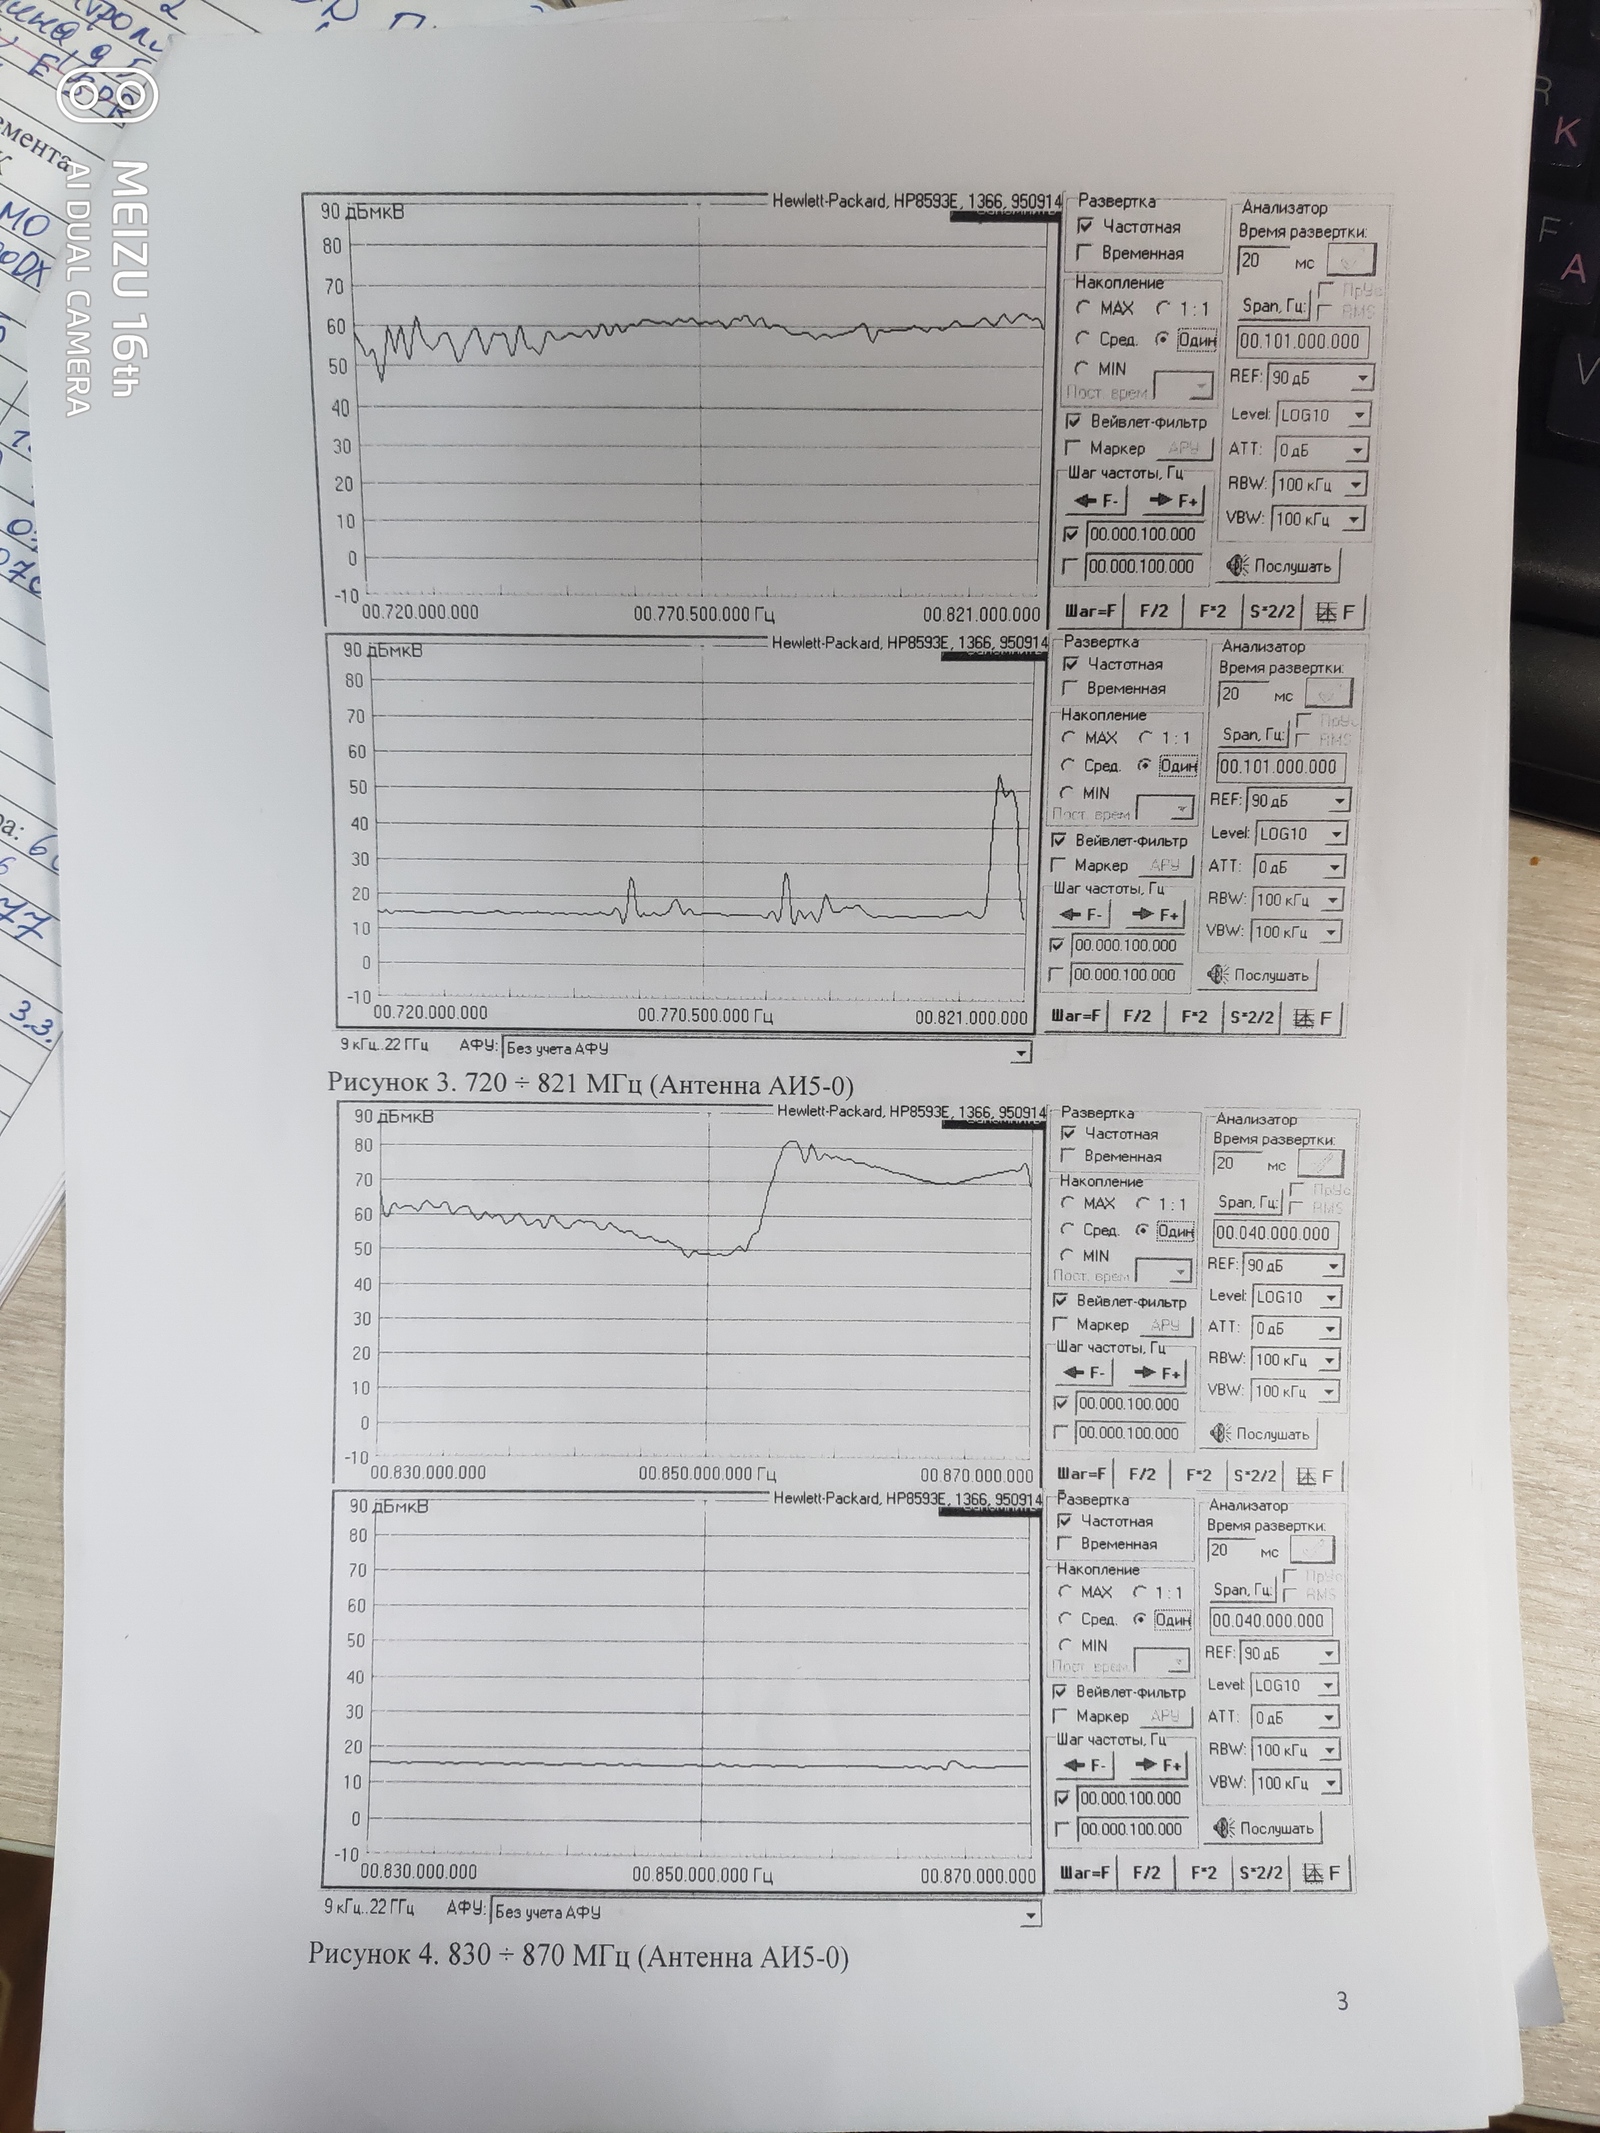 MEIZU 16th
AI DUAL CAMERA
90 дБмкВ
Hewlett-Packard, HP8593E, 1366, 950914
80
70
60
50
40
30
20
10
0
-10
00.720.000.000
00.770.500.000 Гц
00.821.000.000
Развертка
Частотная
Временная
Накопление
MAX
1:1
Сред.
Один
MIN
Пост. врем
Вейвлет-фильтр
Маркер
АРУ
Шаг частоты, Гц
F-
F+
00.000.100.000
00.000.100.000
Анализатор
Время развертки:
20 мс
Span, Гц:
RMS
00.101.000.000
REF: 90 дБ
Level: LOG10
ATT: 0 дБ
RBW: 100 кГц
VBW: 100 кГц
Послушать
Шаг=F
F/2
F*2
S*2/2
F
90 дБмкВ
Hewlett-Packard, HP8593E, 1366, 950914
80
70
60
50
40
30
20
10
0
-10
00.720.000.000
00.770.500.000 Гц
00.821.000.000
Развертка
Частотная
Временная
Накопление
MAX
1:1
Сред.
Один
MIN
Пост. врем
Вейвлет-фильтр
Маркер
АРУ
Шаг частоты, Гц
F-
F+
00.000.100.000
00.000.100.000
Анализатор
Время развертки:
20 мс
Span, Гц:
RMS
00.101.000.000
REF: 90 дБ
Level: LOG10
ATT: 0 дБ
RBW: 100 кГц
VBW: 100 кГц
Послушать
Шаг=F
F/2
F*2
S*2/2
F
9 кГц..22 ГГц
АФУ: Без учета АФУ
Рисунок 3. 720 ÷ 821 МГц (Антенна АИ5-0)
90 дБмкВ
Hewlett-Packard, HP8593E, 1366, 950914
80
70
60
50
40
30
20
10
0
-10
00.830.000.000
00.850.000.000 Гц
00.870.000.000
Развертка
Частотная
Временная
Накопление
MAX
1:1
Сред.
Один
MIN
Пост. врем
Вейвлет-фильтр
Маркер
АРУ
Шаг частоты, Гц
F-
F+
00.000.100.000
00.000.100.000
Анализатор
Время развертки:
20 мс
Span, Гц:
RMS
00.040.000.000
REF: 90 дБ
Level: LOG10
ATT: 0 дБ
RBW: 100 кГц
VBW: 100 кГц
Послушать
Шаг=F
F/2
F*2
S*2/2
F
90 дБмкВ
Hewlett-Packard, HP8593E, 1366, 950914
80
70
60
50
40
30
20
10
0
-10
00.830.000.000
00.850.000.000 Гц
00.870.000.000
Развертка
Частотная
Временная
Накопление
MAX
1:1
Сред.
Один
MIN
Пост. врем
Вейвлет-фильтр
Маркер
АРУ
Шаг частоты, Гц
F-
F+
00.000.100.000
00.000.100.000
Анализатор
Время развертки:
20 мс
Span, Гц:
RMS
00.040.000.000
REF: 90 дБ
Level: LOG10
ATT: 0 дБ
RBW: 100 кГц
VBW: 100 кГц
Послушать
Шаг=F
F/2
F*2
S*2/2
F
9 кГц..22 ГГц
АФУ: Без учета АФУ
Рисунок 4. 830 ÷ 870 МГц (Антенна АИ5-0)
3
3.3.
R
K
F
A
V